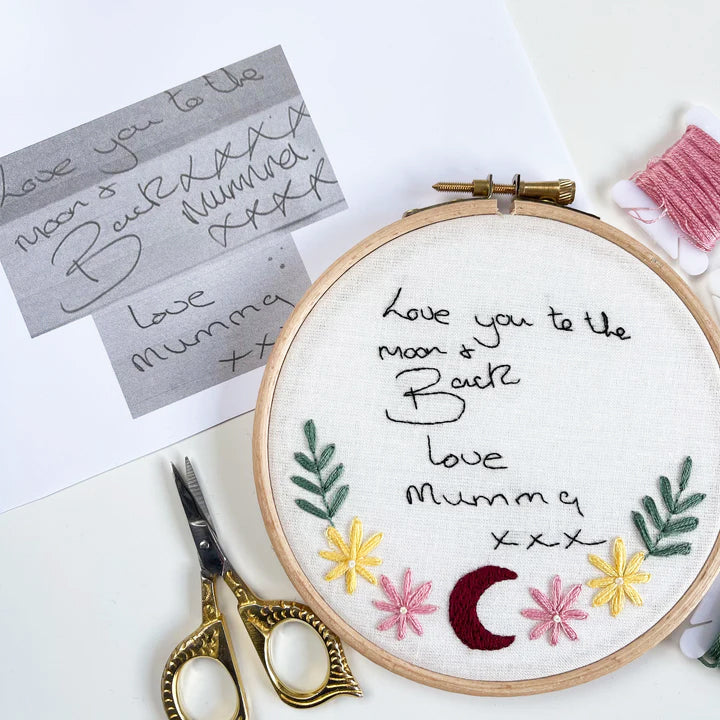 Love you to the
moon &
Back xxxx.
Mumma.
xxxx
Love
mumma
xx
Love you to the
moon &
Back
Love
mumma
xxx